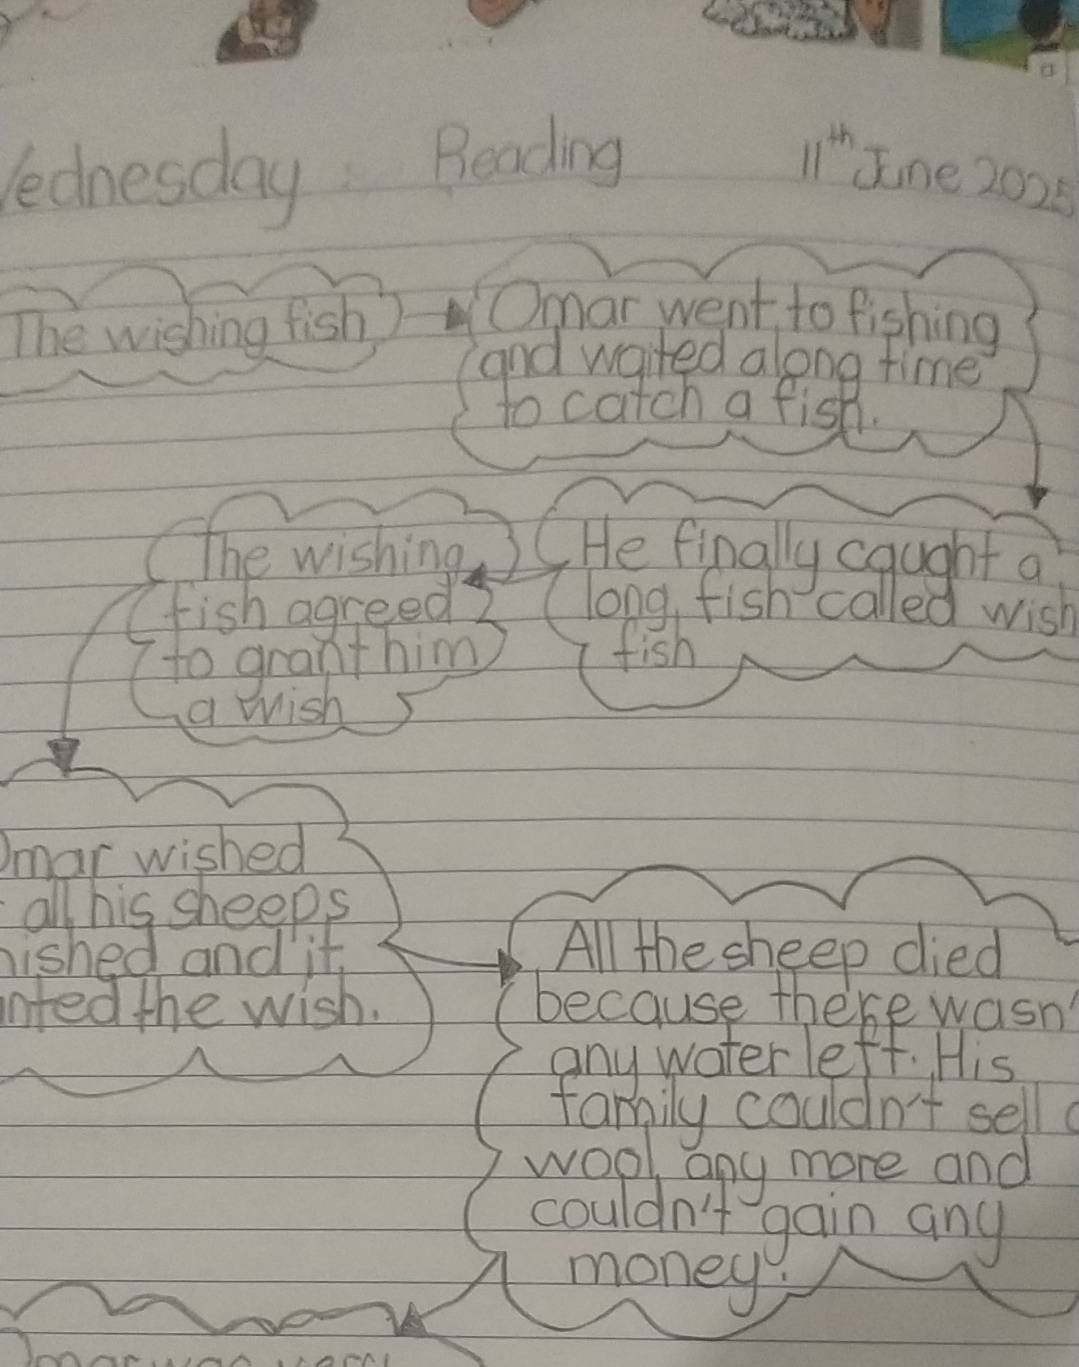 ednesday Reading 11th June 2025
The wishing fish
Omar went to fishing
and waited along time
to catch a fish.
He finally caught a
long fish called wish
fish
The wishing
fish agreed
to grant him
a wish
Omar wished
all his sheeps
ished and it
nted the wish.
All the sheep died
because there wasn'
any water left. His
family couldn't sell
wool any more and
couldn't gain any
money.
Omar was very